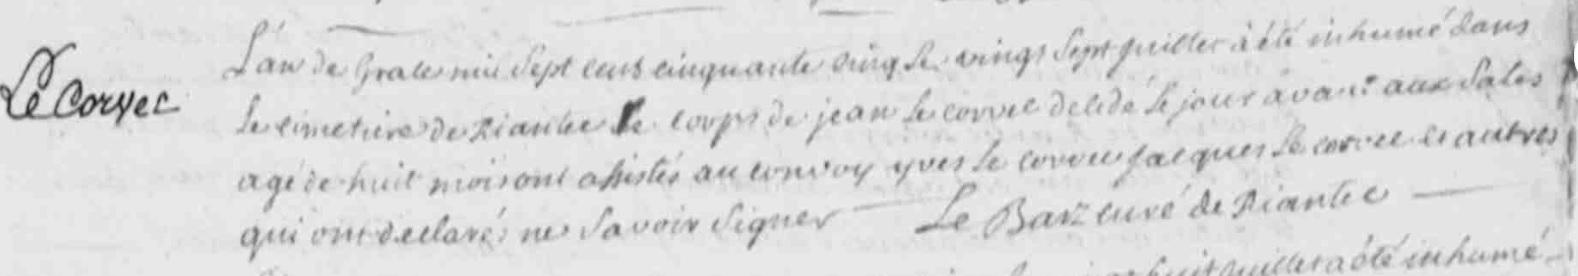 Le Corvec
L'an de Grace mil sept cens cinquante cinq le vingt sept juillet à été inhumé dans
le cimetiere de Riantec le corps de jean le corvec decedé le jour avant aux Sales
agé de huit mois ont assistés au convoy yves le corvec jacques le corvec et autres
qui ont declarés ne savoir signer Le Barz curé de Riantec
huit juillet a été inhumé